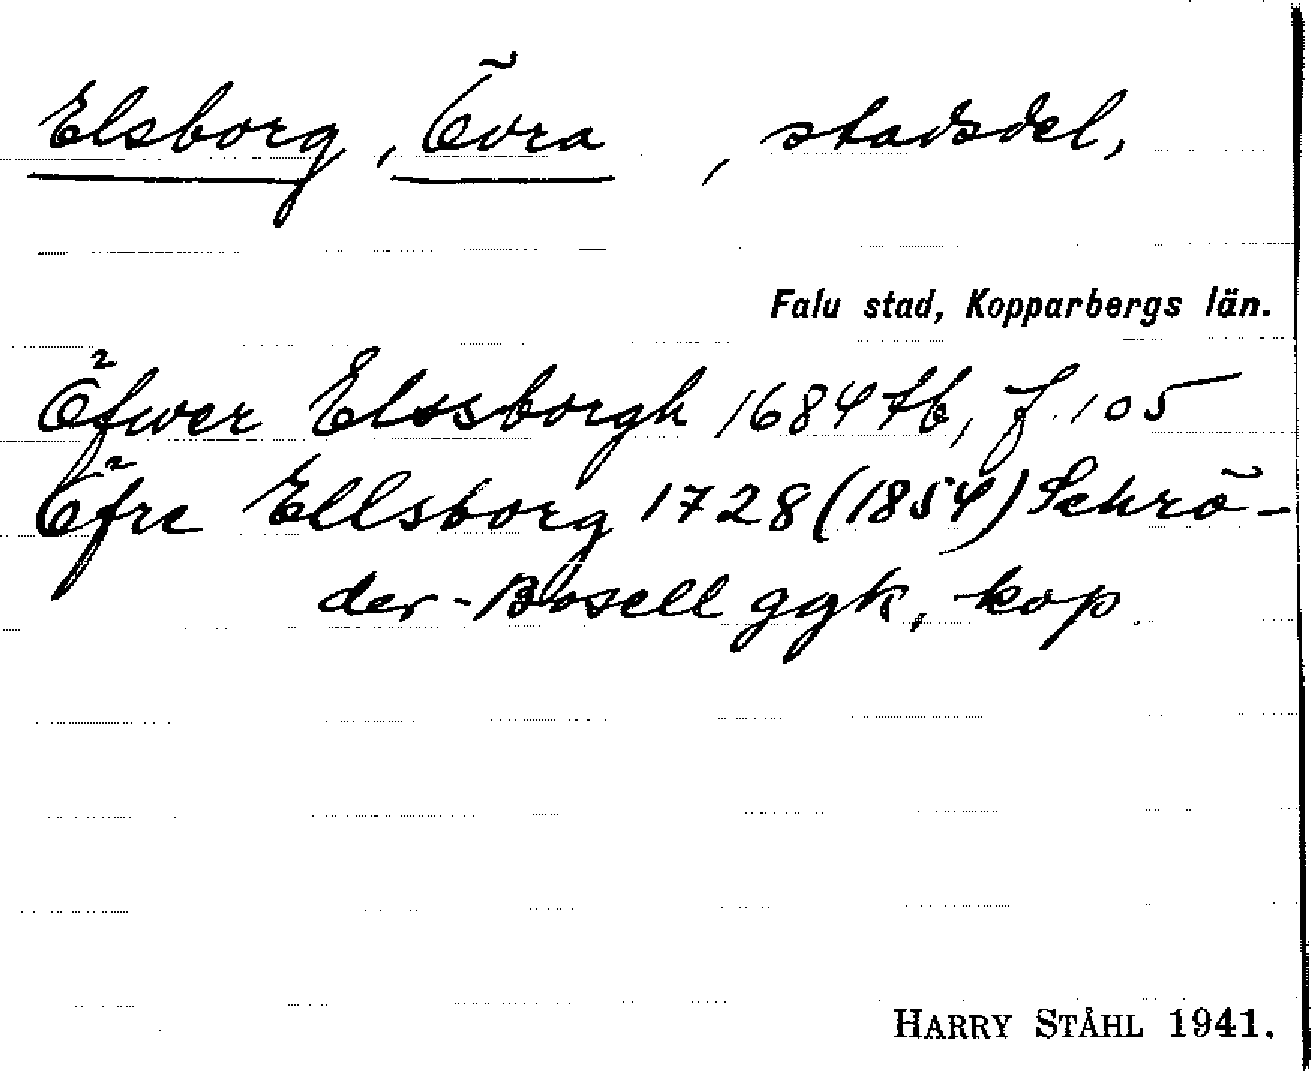 Elsborg, Övra, stadsdel,
Falu stad, Kopparbergs län.
Öfwer Elssborgh 1684 tb, f. 105
Öfre Ellsborg 1728 (1854) Schrö-
der-Bosell ggk, kop.
HARRY STÅHL 1941.